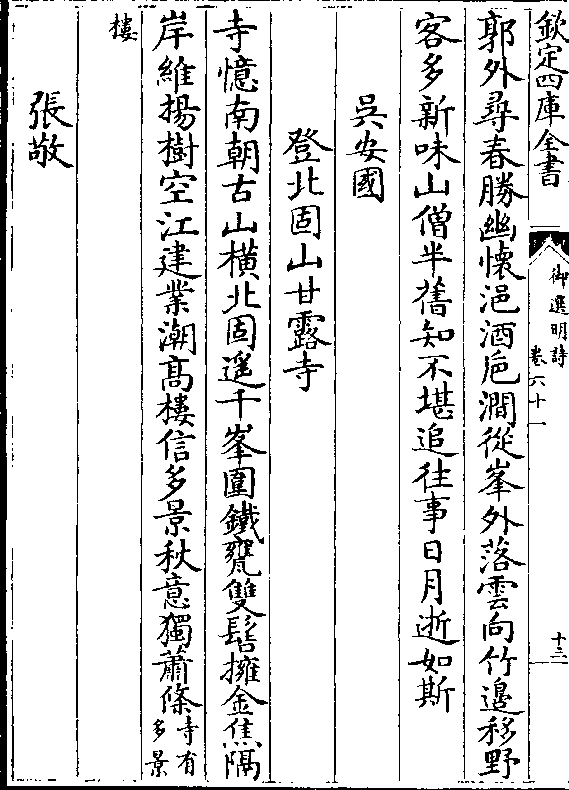 欽定四庫全書
御選明詩
卷六十一
十三
郭外尋春勝幽懷浥酒巵澗從峯外落雲向竹邊移野
客多新味山僧半舊知不堪追往事日月逝如斯
吳安國
登北固山甘露寺
寺憶南朝古山橫北固遥千峯圍鐵甕雙髻擁金焦隔
岸維揚樹空江建業潮高樓信多景秋意獨蕭條寺有多景
樓
張敬